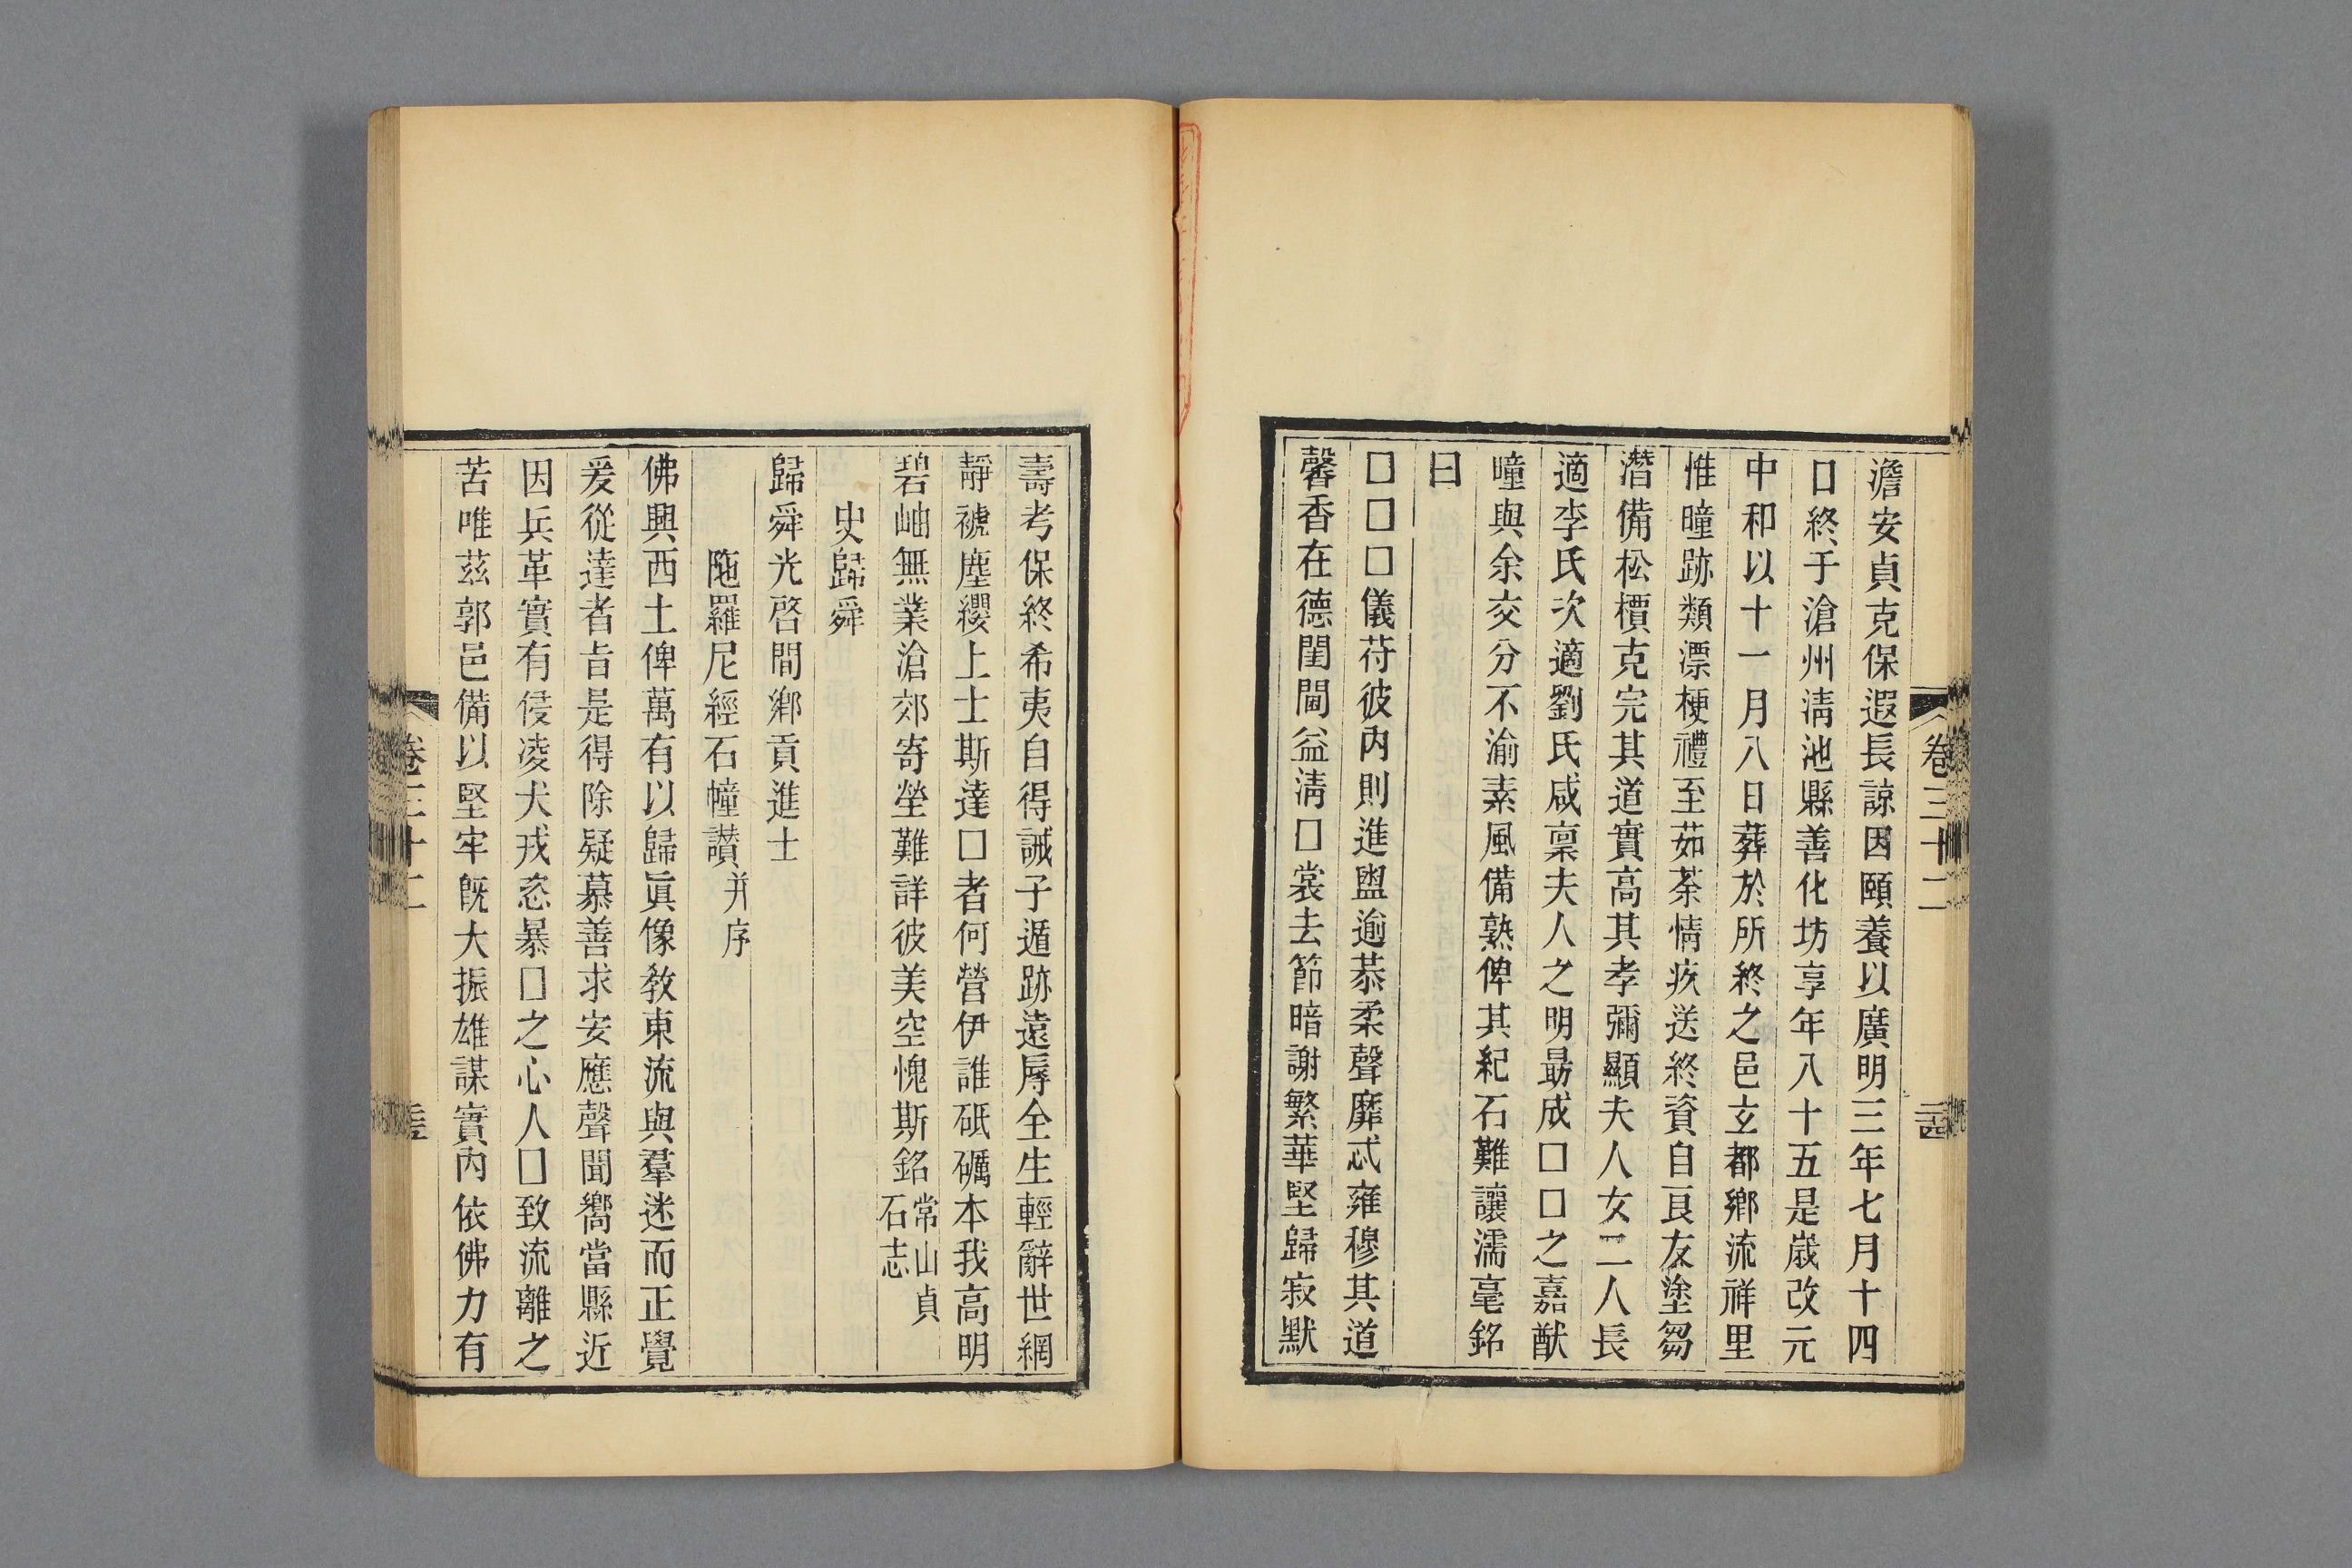 澹安貞克保遐長諒因頤養以廣明三年七月十四
口終于滄州淸池縣善化坊享年八十五是歲改元
中和以十一月八日葬於所終之邑玄都鄉流祥里
惟曈跡類漂梗禮至茹荼情疚送終資自良友塗芻
潛備松檟克完其道實高其孝彌顯夫人女二人長
適李氏次適劉氏咸稟夫人之明最成口口之嘉猷
曈與余交分不渝素風備熟俾其紀石難讓濡毫銘
曰
口口口儀苻彼內則進盥逾恭柔聲靡忒雍穆其道
馨香在德閨閫益淸口裳去節暗謝繁華堅歸寂默
卷三十二
壽考保終希夷自得誡子遁跡遠辱全生輕辭世網
靜褫塵纓上士斯達口者何營伊誰砥礪本我高明
碧岫無業滄郊寄塋難詳彼美空愧斯銘常山貞石志
史歸舜
歸舜光啓間鄉貢進士
陁羅尼經石幢讃并序
佛興西土俾萬有以歸眞像敎東流與羣迷而正覺
爰從達者旨是得除疑慕善求安應聲聞嚮當縣近
因兵革實有侵凌犬戎恣暴口之心人口致流離之
苦唯茲郭邑備以堅牢旣大振雄謀實內依佛力有
卷三十二